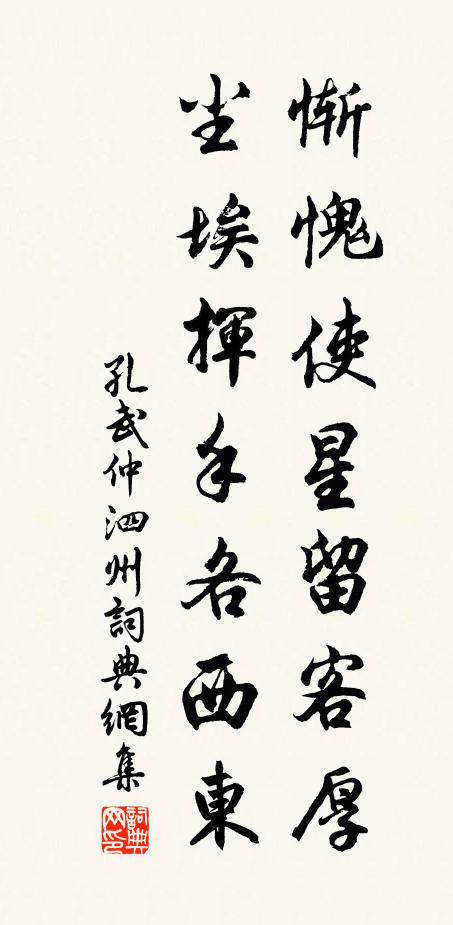 慚愧使星留客厚
尘埃揮手各西東
孔武仲泗州詞典網集
詞典网印